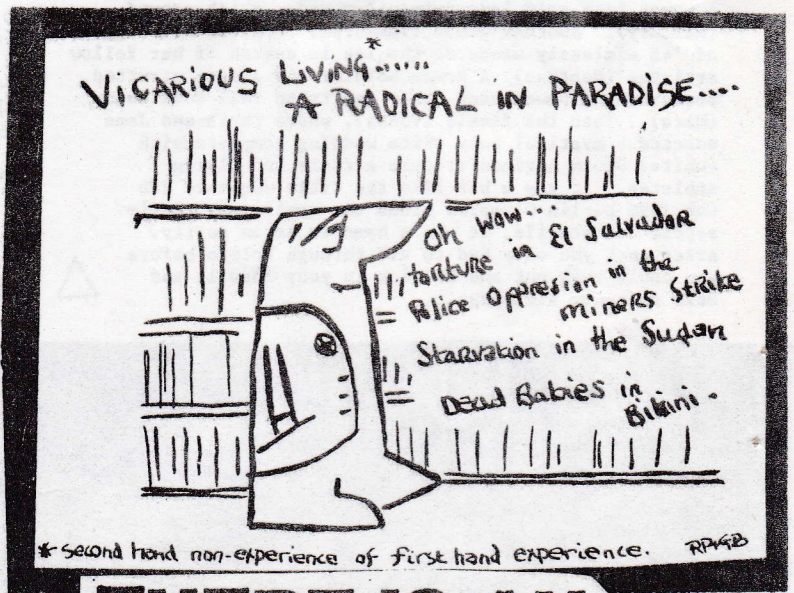 VICARIOUS LIVING*......
A RADICAL IN PARADISE....
Oh wow...
torture in El Salvador
Police Oppresion in the
miners Strike
Starvation in the Sudan
Dead Babies in
Bikini.
* second hand non-experience of first hand experience.